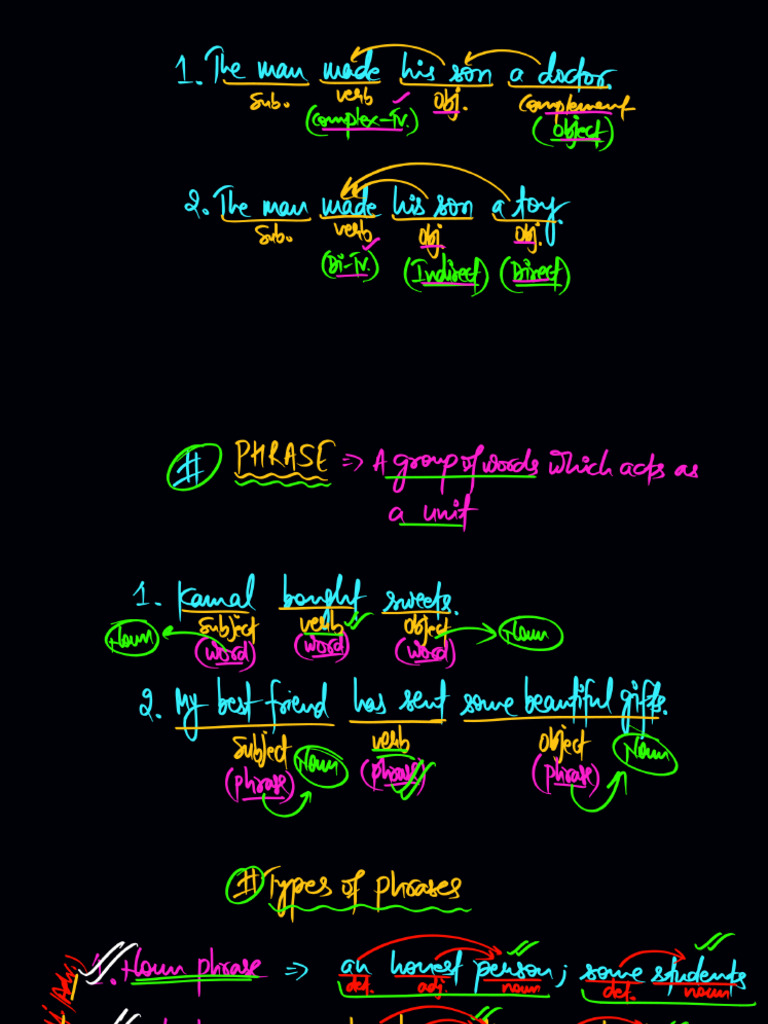 1. The man made his son a doctor.
sub. verb obj. complement
(complex-Tv.) (object)
2. The man made his son a toy.
sub. verb obj. obj.
(Di-Tv.) (Indirect) (Direct)
# PHRASE ⇒ A group of words which acts as
a unit
1. Kamal bought sweets.
Subject verb object
Noun (word) (word) (word) Noun
2. My best friend has sent some beautiful gifts.
Subject verb object
(phrase) Noun (phrase) (phrase) Noun
# Types of phrases
1. Noun phrase ⇒ an honest person; some students
det. adj. noun det. noun